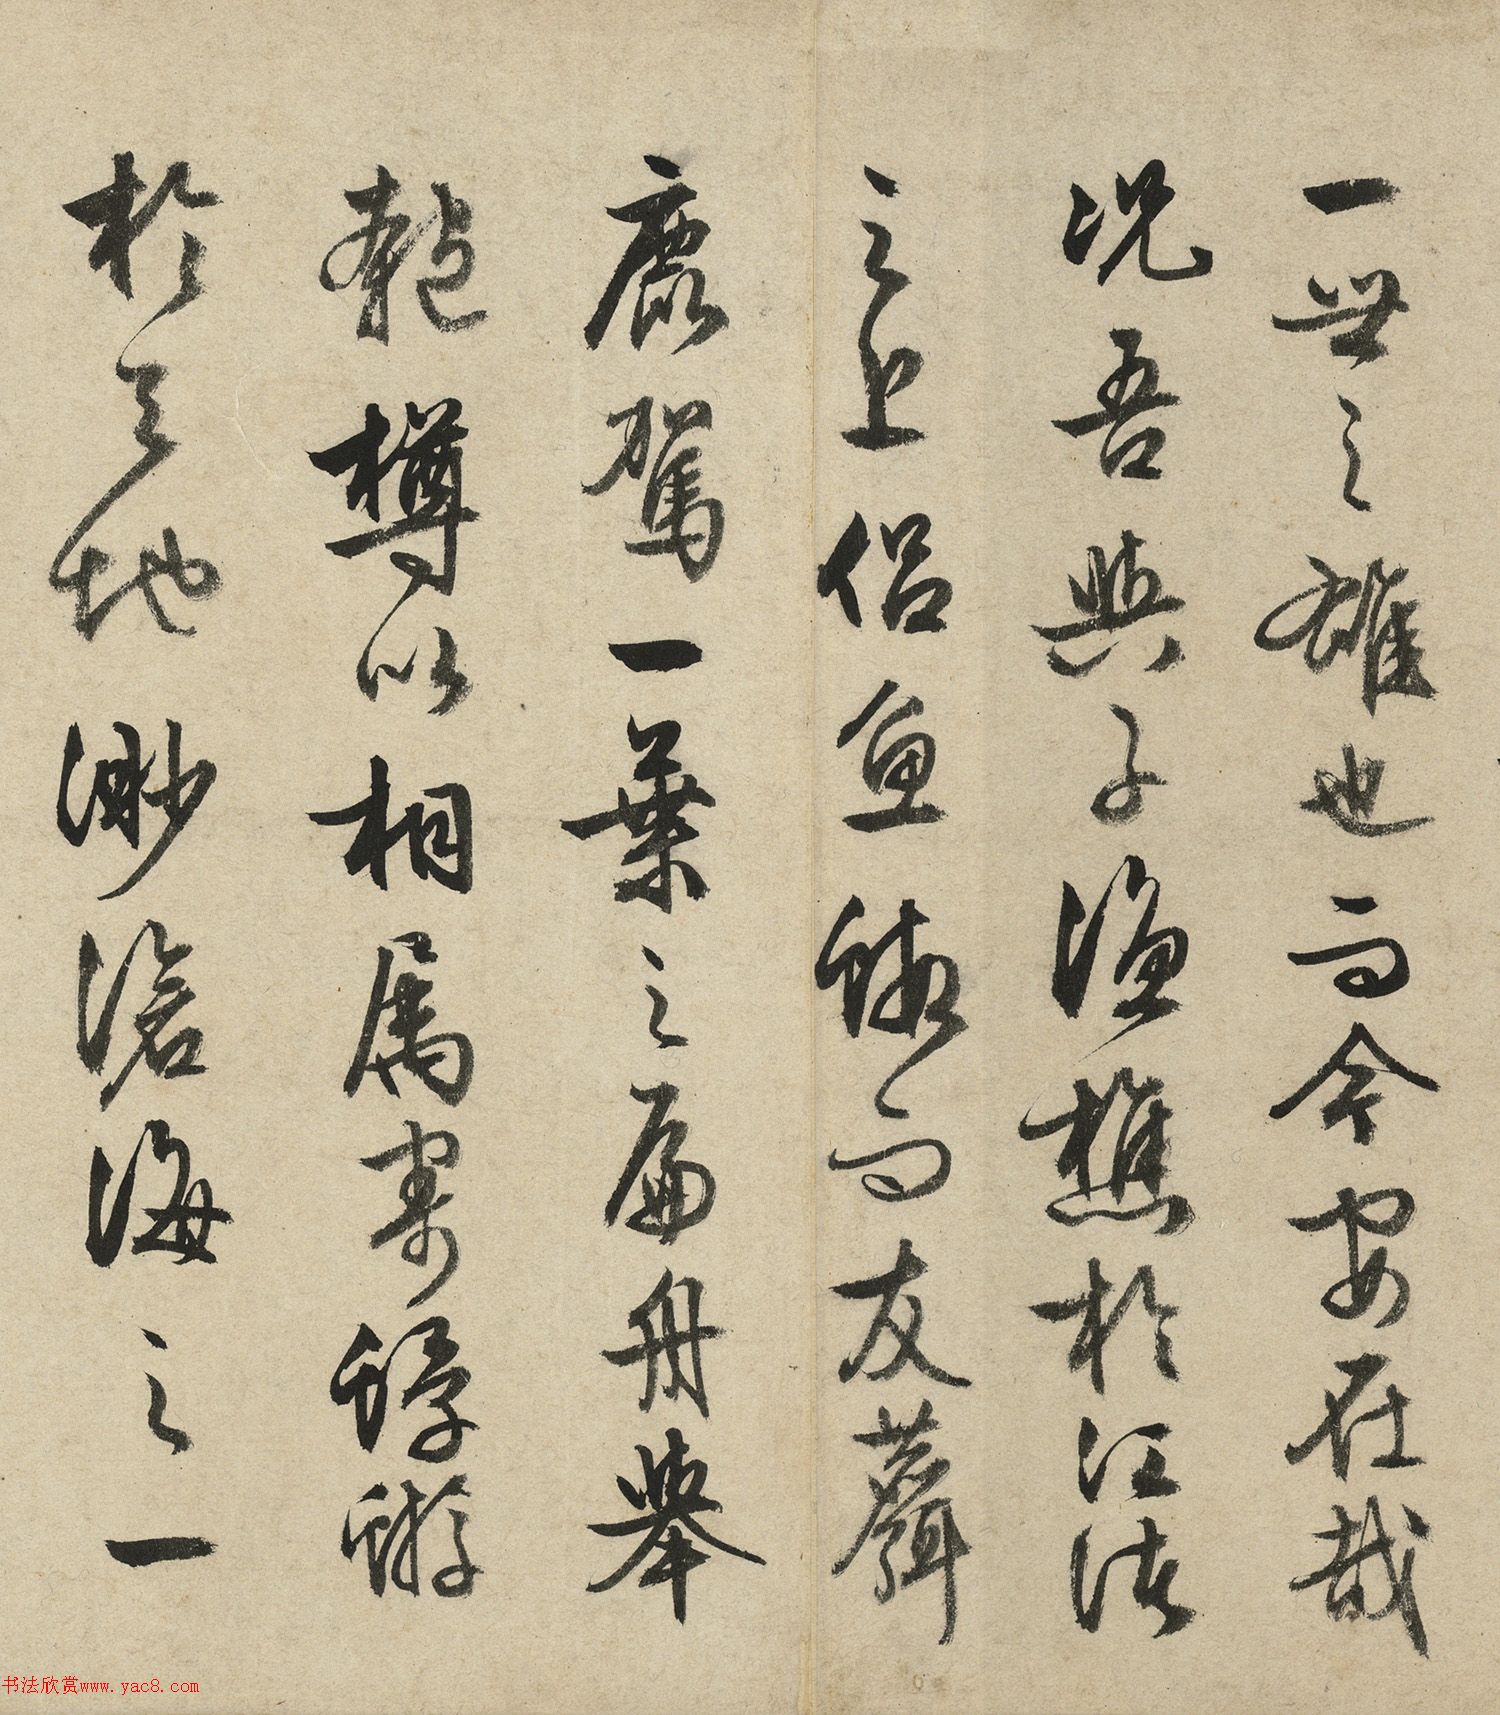 一世之雄也而今安在哉
况吾與子漁樵於江渚
之上侣魚蝦而友麋
鹿駕一葉之扁舟舉
匏樽以相属寄蜉蝣
於天地渺滄海之一
书法欣赏www.yac8.com